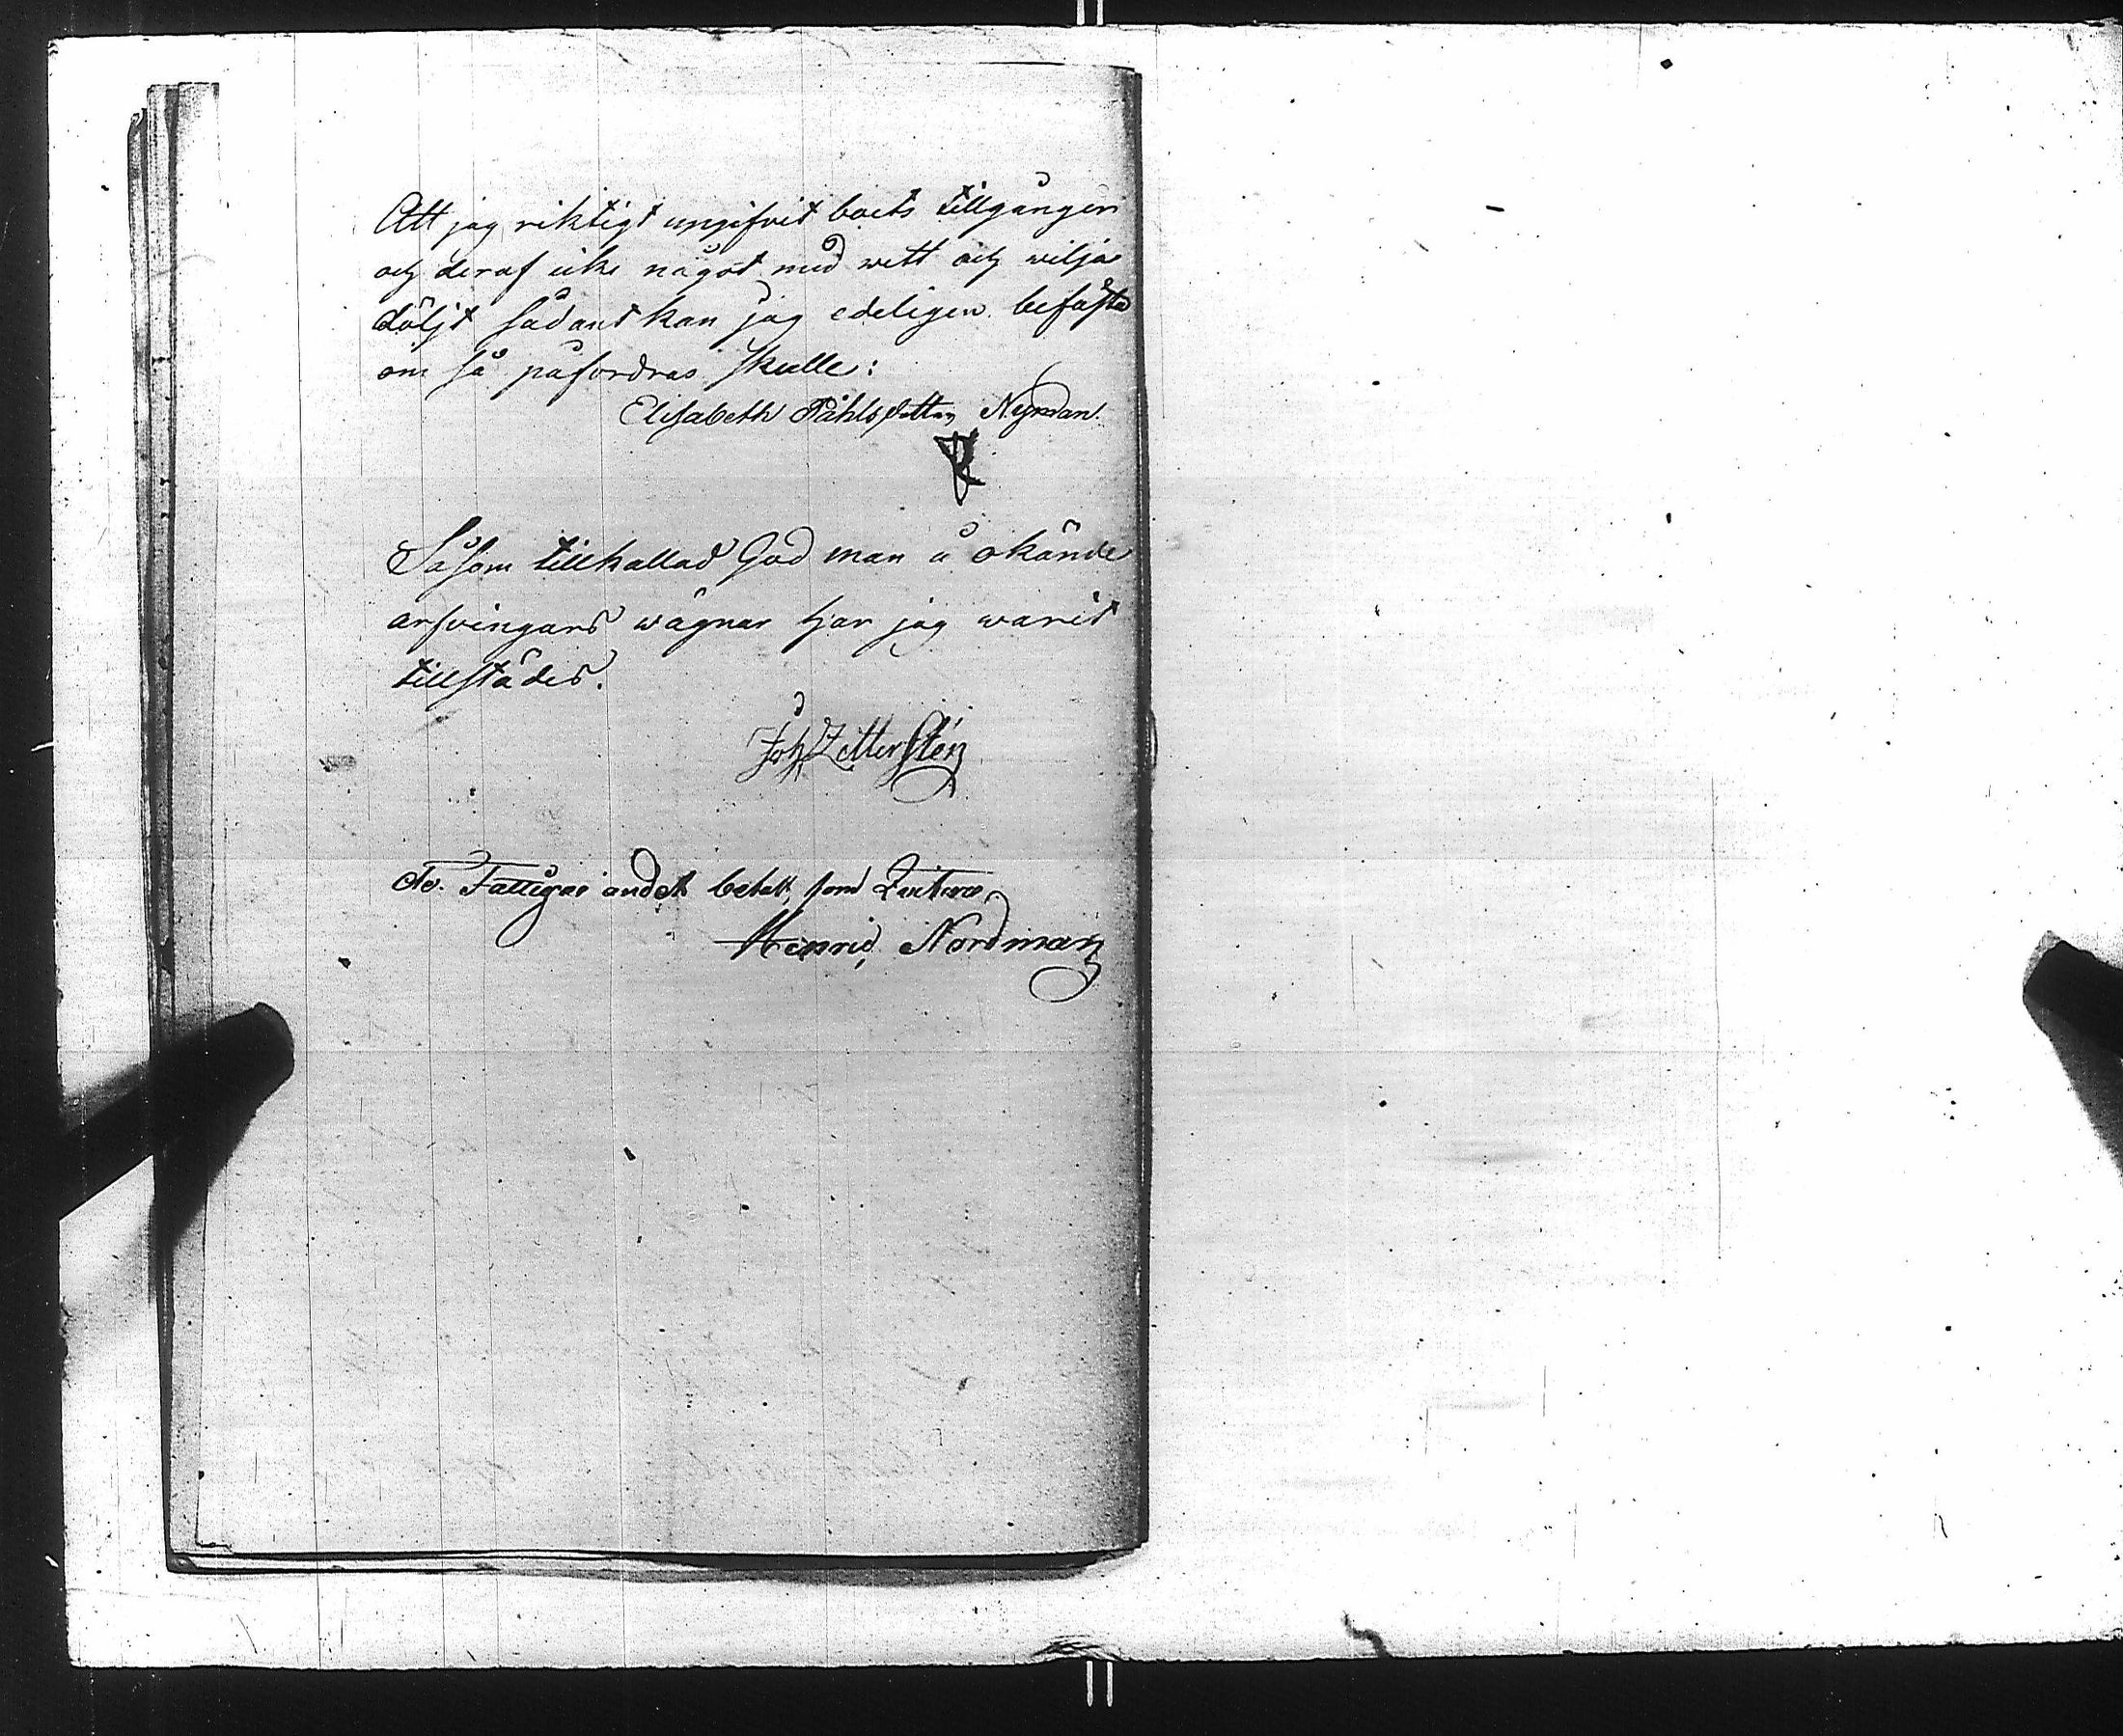 Att jag riktigt uppgifvit boets tillgångar
och deraf icke något med wett och wilja
döljt sådant kan jag edeligen befästa
om så påfordras skulle:
Elisabeth Påhlsdotter Nyman
Såsom tillkallad God man å okände
arfvingars wägnar har jag warit
tillstädes.
Joh Zetterstén
De Fattigas andel betalt, som Quiteras,
Henric Nordman